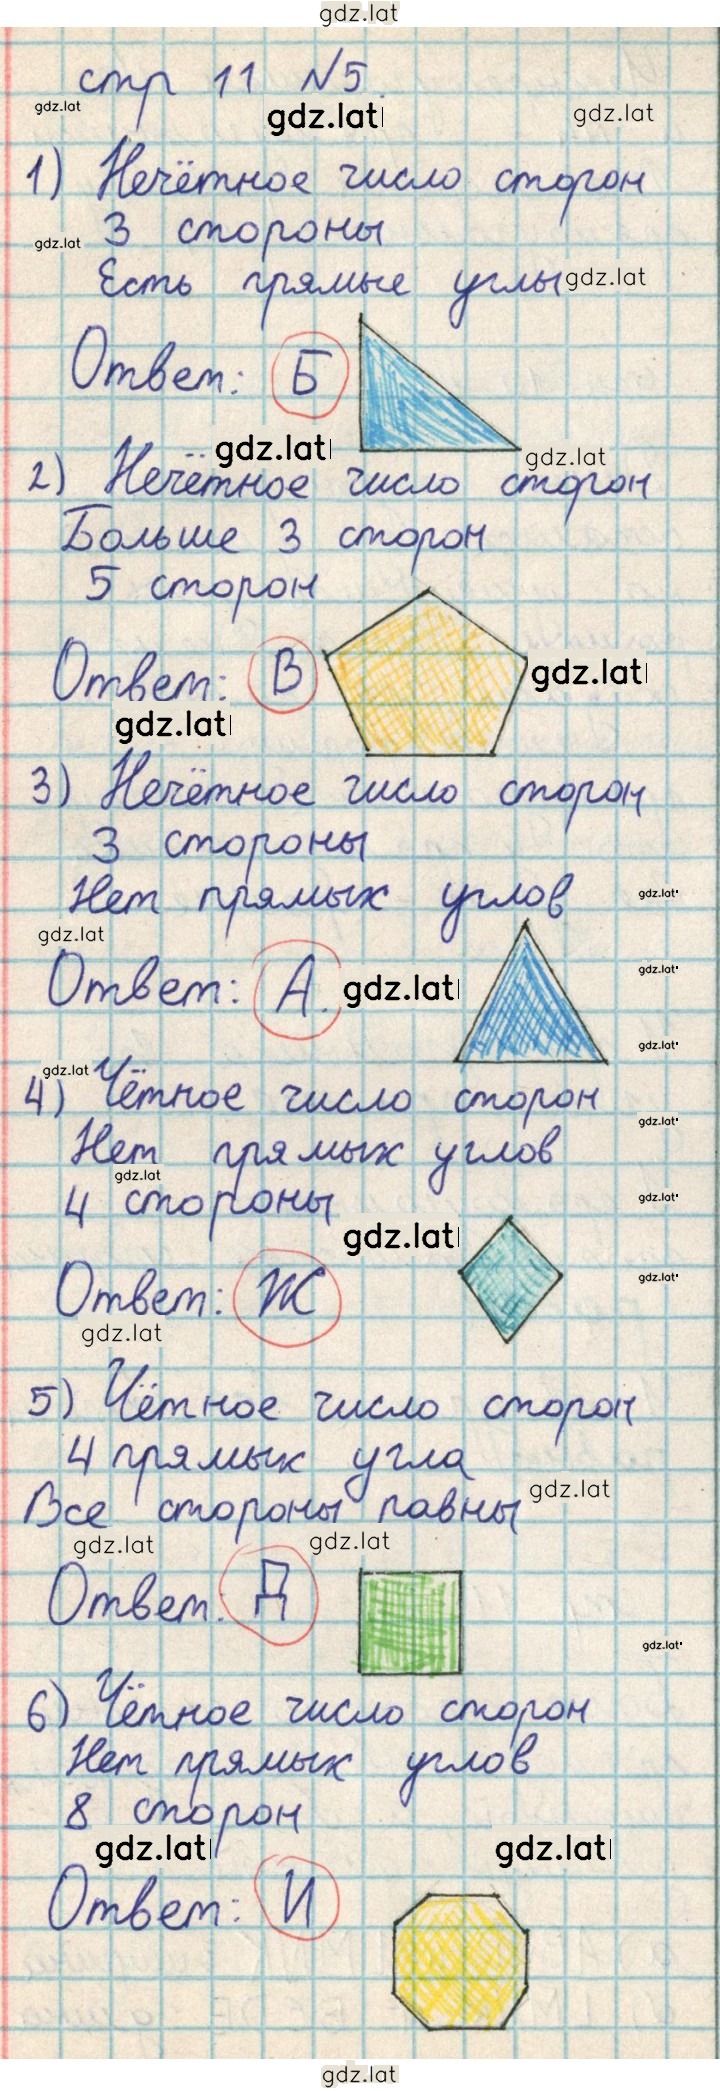 gdz.lat
стр 11 №5.
gdz.lat gdz.lat gdz.lat
1) Нечётное число сторон
3 стороны
gdz.lat
Есть прямые углы gdz.lat
Ответ: Б
gdz.lat gdz.lat
2) Нечётное число сторон
Больше 3 сторон
5 сторон
Ответ: В gdz.lat
gdz.lat
3) Нечётное число сторон
3 стороны
Нет прямых углов gdz.lat
gdz.lat
Ответ: А. gdz.lat gdz.lat
gdz.lat
gdz.lat
4) Чётное число сторон
gdz.lat
Нет прямых углов
gdz.lat
4 стороны gdz.lat
gdz.lat
Ответ: Ж gdz.lat
gdz.lat
5) Чётное число сторон
4 прямых угла
Все стороны равны gdz.lat
gdz.lat gdz.lat
Ответ: Д
gdz.lat
6) Чётное число сторон
Нет прямых углов
8 сторон
gdz.lat gdz.lat
Ответ: И
gdz.lat